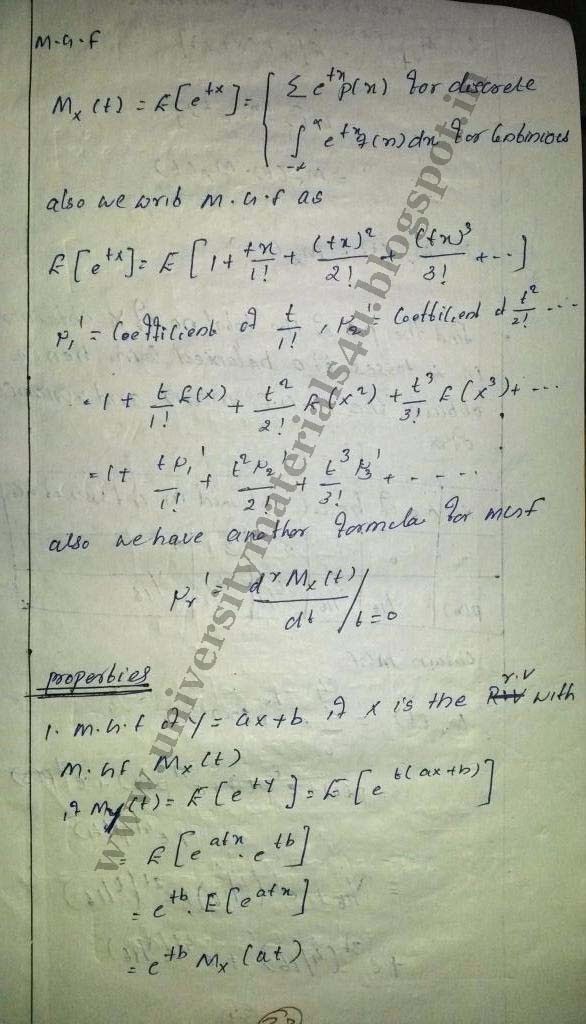 M.G.F
M_x(t) = E[e^{tx}] = { Σ e^{tx} p(x) for discrete
∫_{-∞}^{∞} e^{tx} f(x) dx for Continious
also we write M.G.F as
E[e^{tx}] = E[1 + tx/1! + (tx)^2/2! + (tx)^3/3! + ---]
μ_1' = Coefficient of t/1! , μ_2' = Coefficient of t^2/2! ---
= 1 + t/1! E(x) + t^2/2! E(x^2) + t^3/3! E(x^3) + ---
= 1 + tμ_1'/1! + t^2μ_2'/2! + t^3/3! μ_3' + ----
also we have another formula for MGF
μ_r' = d^r M_x(t)/dt /_{t=0}
properties
1. M.G.F of Y = ax+b if x is the r.v with
M.GF M_x(t)
if M_y(t) = E[e^{ty}] = E[e^{t(ax+b)}]
= E[e^{atx} . e^{tb}]
= e^{tb} . E[e^{atx}]
= e^{tb} M_x(at)
www.universitymaterials4u.blogspot.in